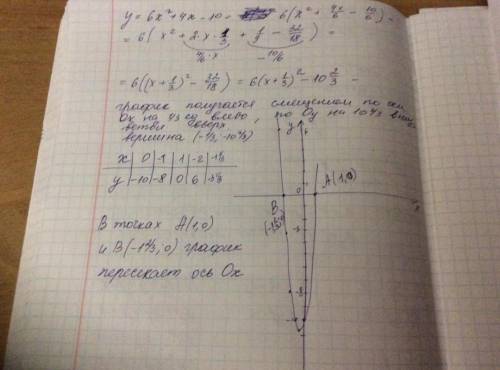 y = 6x² + 4x - 10 = 6(x² + 4x/6 - 10/6) =
= 6(x² + 2·x·1/3 + 1/9 - 32/18) =
4/6·x -10/6
= 6((x + 1/3)² - 32/18) = 6(x + 1/3)² - 10 2/3 -
график получается смещением по оси
Ох на 1/3 ед влево, по Оу на 10 2/3 вниз
ветви вверх,
вершина (-1/3; -10 2/3)
x | 0 | -1 | 1 | -2
y | -10 | -8 | 0 | 6
В точках А(1,0)
и В(-1 2/3; 0) график
пересекает ось Ох
y
0
A(1,0)
B
x